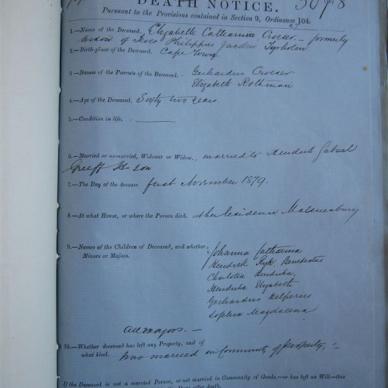 DEATH NOTICE.
Pursuant to the Provisions contained in Section 9, Ordinance 104.
1.—Name of the Deceased, Elizabeth Catharina Croeser — formerly
widow of Jacobus Philippus Jacobus
2.—Birth-place of the Deceased, Cape Town
3.—Names of the Parents of the Deceased, Gerhardus Croeser
Elizabeth Rothman
4.—Age of the Deceased, Sixty two years
5.—Condition in life,
6.—Married or unmarried, Widower or Widow, married to Hendrik Gabriel
Greeff
7.—The Day of the decease first November 1879.
8.—At what House, or where the Person died, residence Malmesbury
9.—Names of the Children of Deceased, and whether
Minors or Majors.
Johanna Catharina
Hendrik
Hendrika
Elizabeth
Gerhardus
Sophia Magdalena
all majors. —
10.—Whether deceased has left any Property, and of
what kind. was married in Community of property. —
If the Deceased is not a married Person, or not married in Community of Goods,—or has left no Will—this